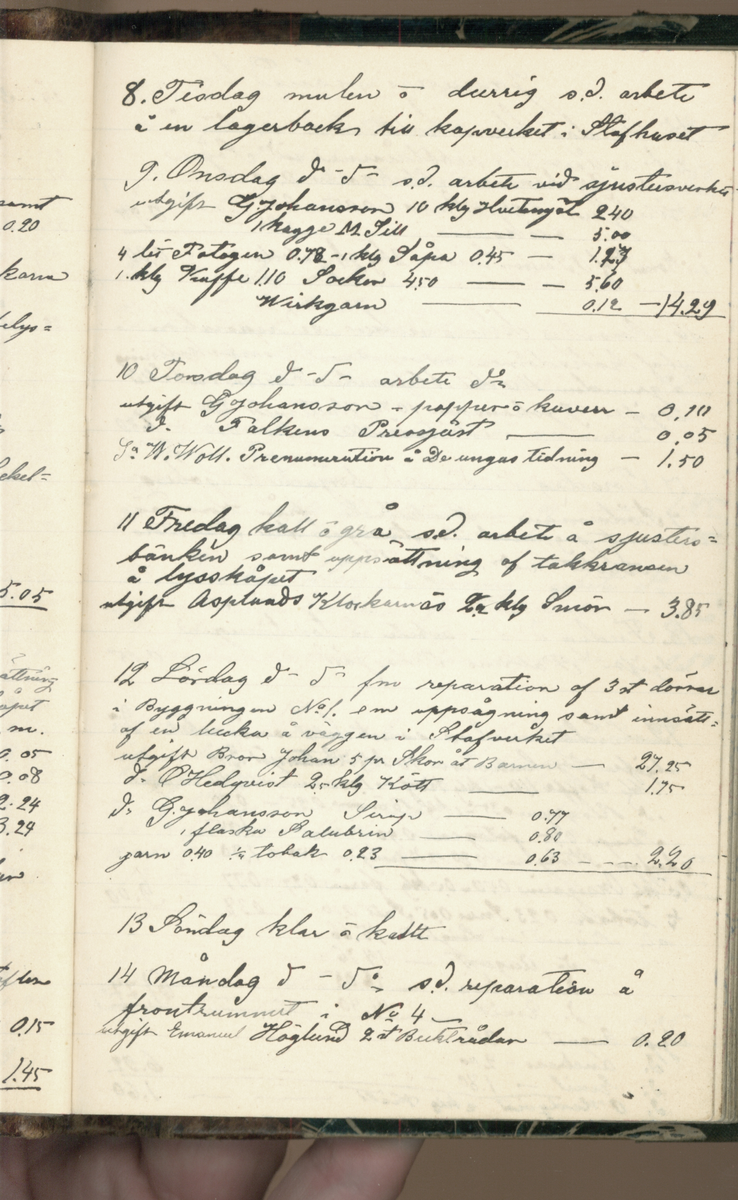 samt
0.20
8. Tisdag mulen o durrig s.d. arbete
å en lagerbock till kapverket i Stafhuset
9. Onsdag d -5- s.d. arbete vid sjustersverket
utgift G Johansson 10 klg Hvetemjöl 2.40
1 kagge M Sill — — 5.00
4 lit Fotogen 0.72 - 1 klg Såpa 0.45 — 1.17
1. klg Kaffe 1.10 Socker 4.50 — — 5.60
Wirkgarn — 0.12 — 14.29
10 Torsdag d -5- arbete do
utgift G Johansson - papper o kuverr — 0.10
d. Falkens Pressjäst — 0.05
So W. Woll. Prenumeration å De ungas tidning — 1.50
11 Fredag kall o grå s.d. arbete å sjusters=
bänken samt uppsättning af takkransen
å lysskåpet
utgift Asplunds Klockarnäs klg Smör — 3.85
5.05
12 Lördag d -5- fm reparation af 3 st dörrar
i Byggningen No 1. em uppsågning samt innsätt=
af en lucka å väggen i Stafverket
utgift Bror Johan 5 pr Skor åt Barnen — 27.25
d. O Hedqvist 2 klg Kött — 1.75
d. G Johansson Sirap — 0.77
1 flaska Salubrin — 0.80
garn 0.40 ¼ tobak 0.23 — 0.63 - - - 2.20
m.
0.05
0.08
2.24
3.24
13 Söndag klar o kallt
14 Måndag d -5- s.d. reparation å
frontrummet i No 4
utgift Emanuel Höglund 2 st Becktrådar — 0.20
0.15
1.45